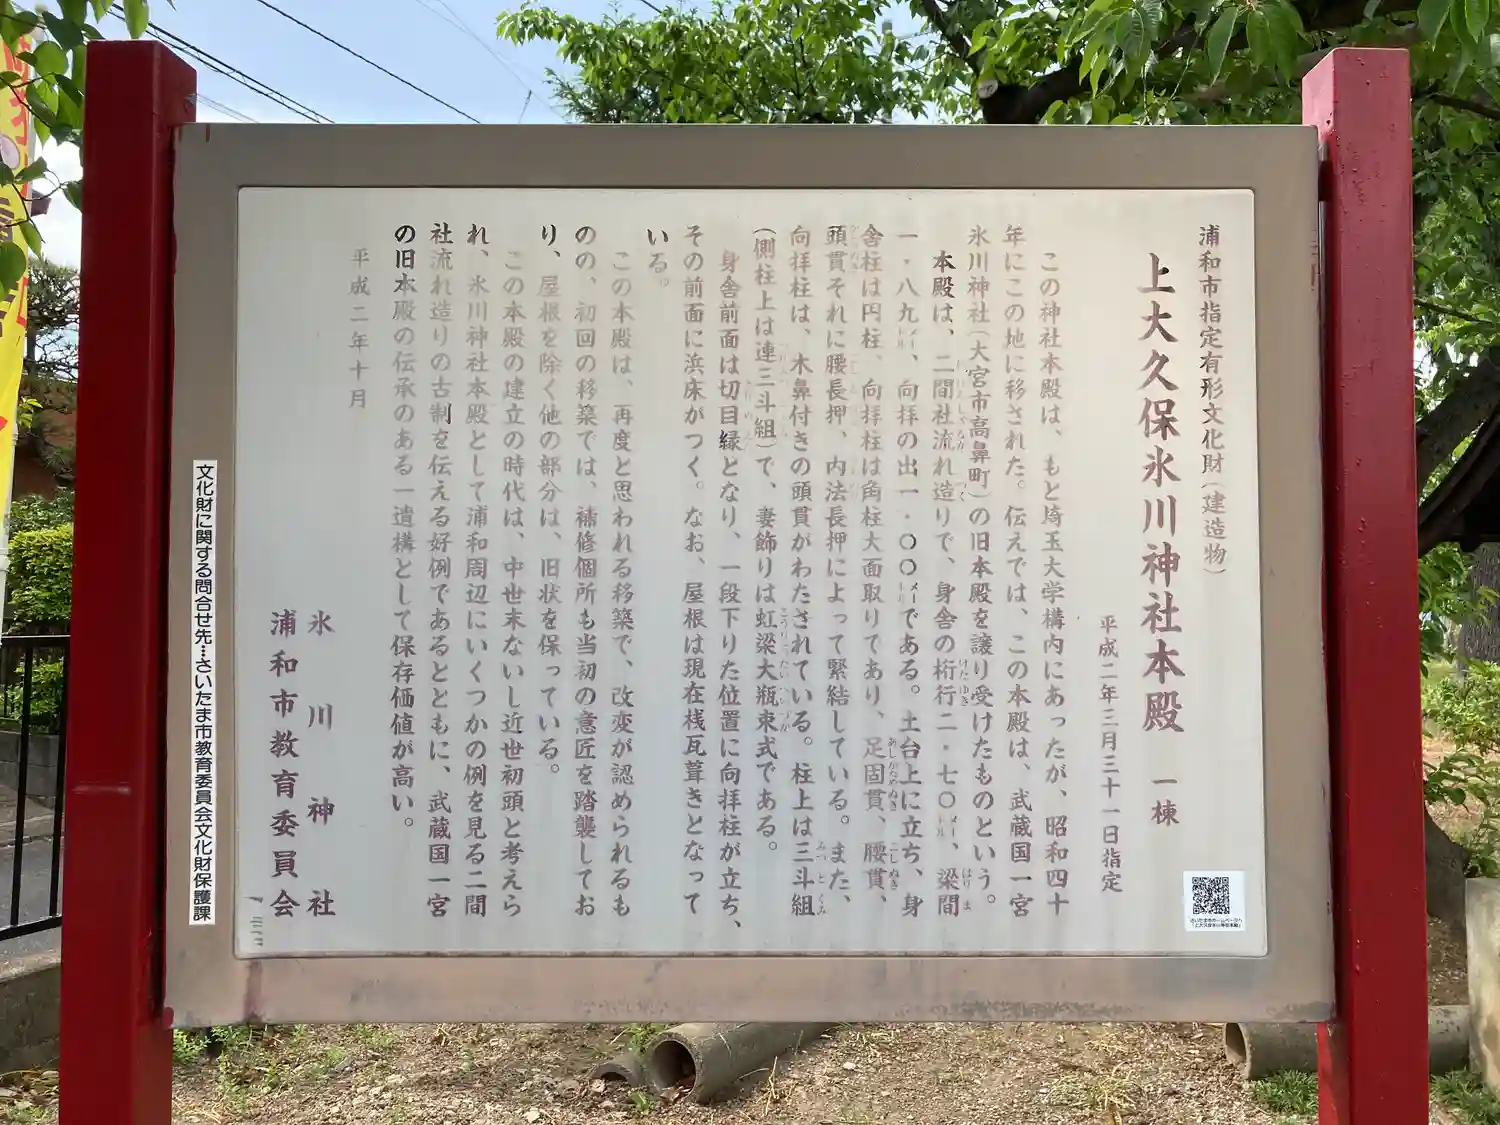 浦和市指定有形文化財(建造物)
上大久保氷川神社本殿 一棟
平成二年三月三十一日指定
この神社本殿は、もと埼玉大学構内にあったが、昭和四十
年にこの地に移された。伝えでは、この本殿は、武蔵国一宮
氷川神社(大宮市高鼻町)の旧本殿を譲り受けたものという。
本殿は、二間社流れ造りで、身舎の桁行二・七〇メートル、梁間
一・八九メートル、向拝の出一・〇〇メートルである。土台上に立ち、身
舎柱は円柱、向拝柱は角柱大面取りであり、足固貫、腰貫、
頭貫それに腰長押、内法長押によって緊結している。また、
向拝柱は、木鼻付きの頭貫がわたされている。柱上は三斗組
(側柱上は連三斗組)で、妻飾りは虹梁大瓶束式である。
身舎前面は切目縁となり、一段下りた位置に向拝柱が立ち、
その前面に浜床がつく。なお、屋根は現在桟瓦葺きとなって
いる。
この本殿は、再度と思われる移築で、改変が認められるも
のの、初回の移築では、補修個所も当初の意匠を踏襲してお
り、屋根を除く他の部分は、旧状を保っている。
この本殿の建立の時代は、中世末ないし近世初頭と考えら
れ、氷川神社本殿として浦和周辺にいくつかの例を見る二間
社流れ造りの古制を伝える好例であるとともに、武蔵国一宮
の旧本殿の伝承のある一遺構として保存価値が高い。
平成二年十月
氷川神社
浦和市教育委員会
文化財に関する問合せ先…さいたま市教育委員会文化財保護課
さいたま市ホームページへ
「上大久保氷川神社本殿」